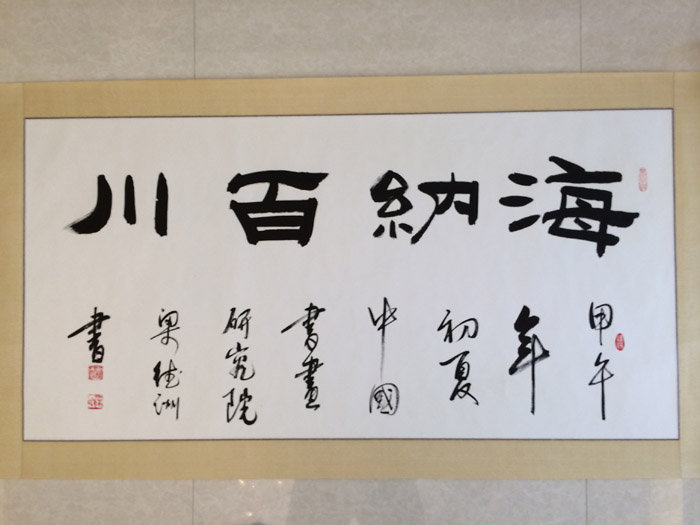 海納百川
甲午
年
初夏
中國
書畫
研究院
梁德洲
書